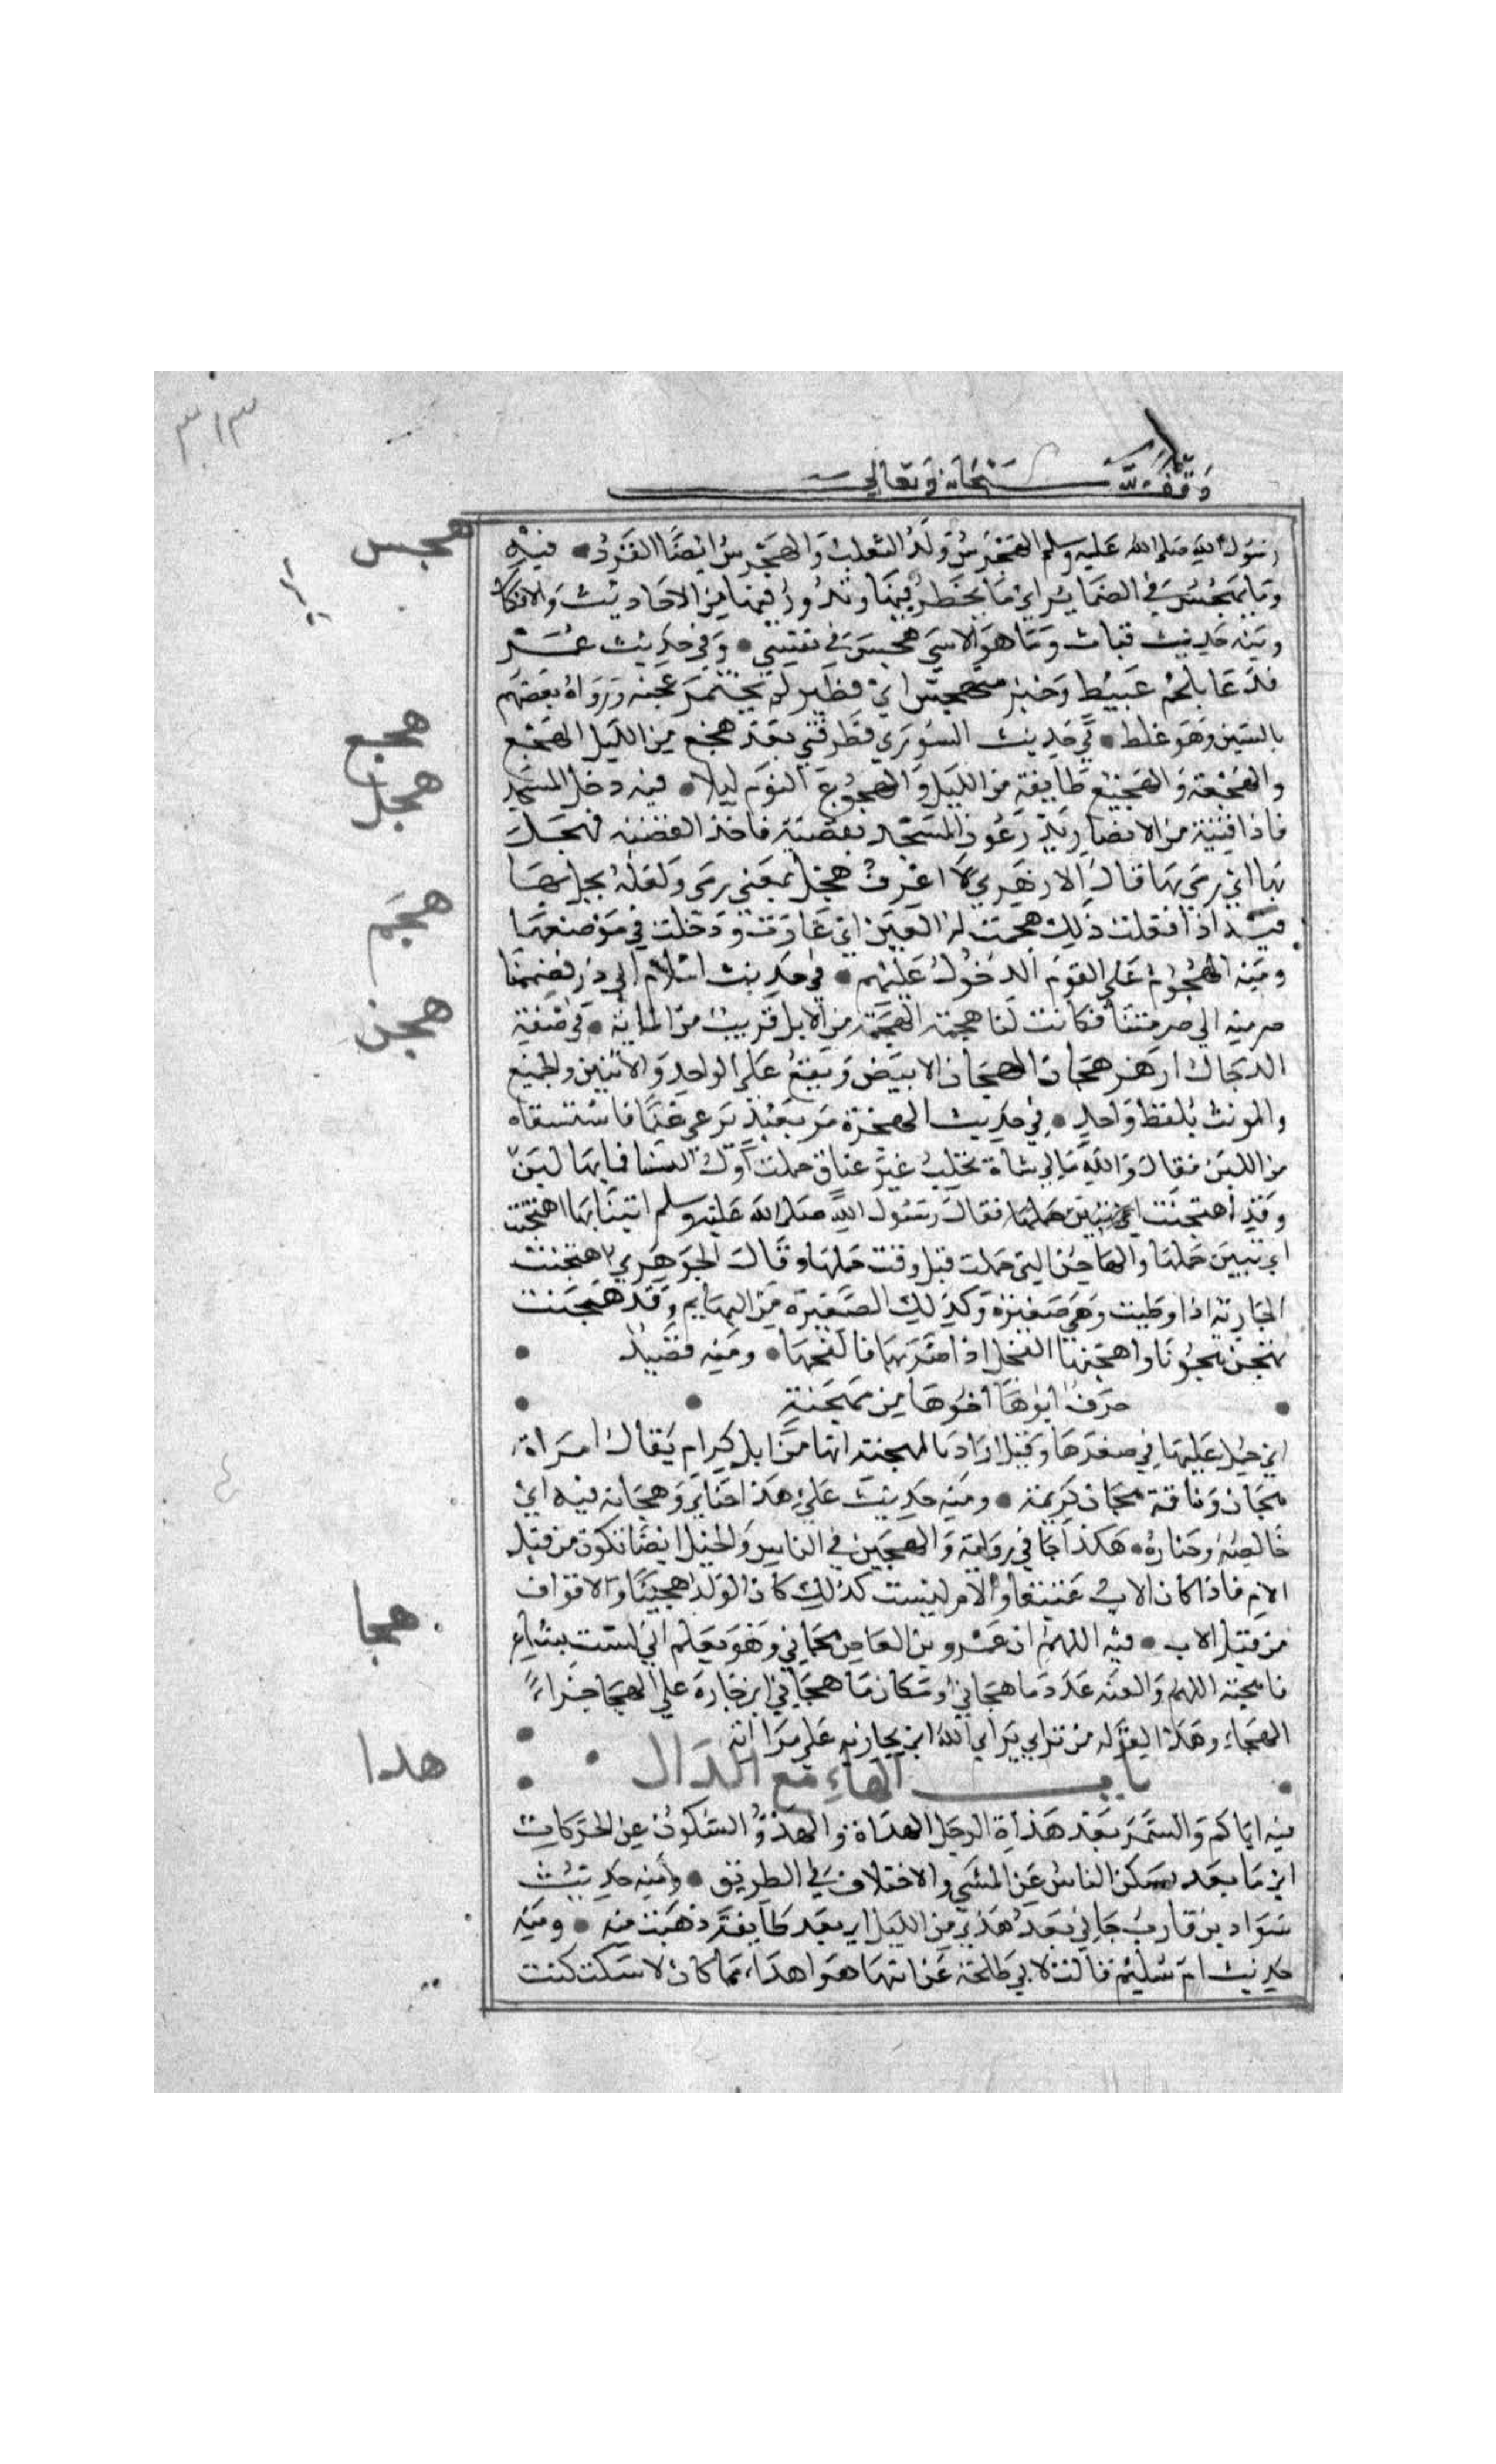 ٣١٣
وقف لله سبحانه وتعالى
رسول الله صلى الله عليه وسلم الهجرس ولد الثعلب والهجرس ايضا القرد • فيه
هجس
وما يهجس في الضماير اي ما يخطر فيها وتدور فيها من الاحاديث والافكار
ومنه حديث قباث وما هو الا شي هجس في نفسي • وفي حديث عمر
فدعا بلحم عبيط وخبز متهجس اي فطير لم يختمر عجنه ورواه بعضهم
بالسين وهو غلط • في حديث الثوري فطرقني بعد هجع من الليل الهجع
هجع
والهجعة والهجيع طايفة من الليل والهجوع النوم ليلا • فيه دخل المسجد
هجل
فاذا فتية من الانصار يذرعون المسجد بقصبة فاخذ القصبة فهجل
بها اي رمى بها قال الازهري لا اعرف هجل بمعنى رمى ولعله نجل بها
هجم
فيه اذا فعلت ذلك هجمت له العين اي غارت ودخلت في موضعها
ومنه الهجوم على القوم الدخول عليهم • في حديث اسلام ابي ذر فضممنا
صرمته الى صرمتنا فكانت لنا هجمة الهجمة من الابل قريب من الماية • في صفة
هجن
الدجال ازهر هجان الهجان الابيض ويقع على الواحد والاثنين والجميع
والمونث بلفظ واحد • في حديث الهجرة مر بعبد يرعى غنما فاستسقاه
من اللبن فقال والله ما لي شاة تحلب غير عناق حملت اول الشتا فما بها لبن
وقد اهتجنت اي تبين حملها فقال رسول الله صلى الله عليه وسلم ايتنا بها اهتجنت
اي تبين حملها والهاجن التي حملت قبل وقت حملها وقال الجوهري اهتجنت
الجارية اذا وطيت وهي صغيرة وكذلك الصغيرة من البهايم وقد هجنت
تهجن هجونا واهجنها الفحل اذا ضربها فالقحها • ومنه قصيد •
• حرف ابوها اخوها من مهجنة • •
اي حمل عليها في صغرها وقيل اراد بالمهجنة انها من ابل كرام يقال امراة
هجان وناقة هجان كريمة • ومنه حديث علي هذا جناي وهجانه فيه اي
خالصه وخياره • هكذا جا في رواية والهجين في الناس والخيل ايضا تكون من قبل
الام فاذا كان الاب عتيقا والام ليست كذلك كان الولد هجينا والاقراف
من قبل الاب • فيه اللهم ان عمرو بن العاص هجاني وهو يعلم اني لست بشاعر
هجا
فاهجه اللهم والعنه عدد ما هجاني او مكان ما هجاني اي جازه على الهجا جزاء
الهجاء وهذا كقوله من يراي يراي الله اي يجازيه على مراااته •
هدا
• باب الهاء مع الدال • •
فيه اياكم والسمر بعد هداة الرجل الهداة والهدو السكون عن الحركات
اي ما بعد سكن الناس عن المشي والاختلاف في الطريق • ومنه حديث
سواد بن قارب جاني بعد هدي من الليل اي بعد طايفة ذهبت منه • ومنه
حديث ام سليم قالت لابي طلحة عن ابنها هو اهدا مما كان لا سكت كنت